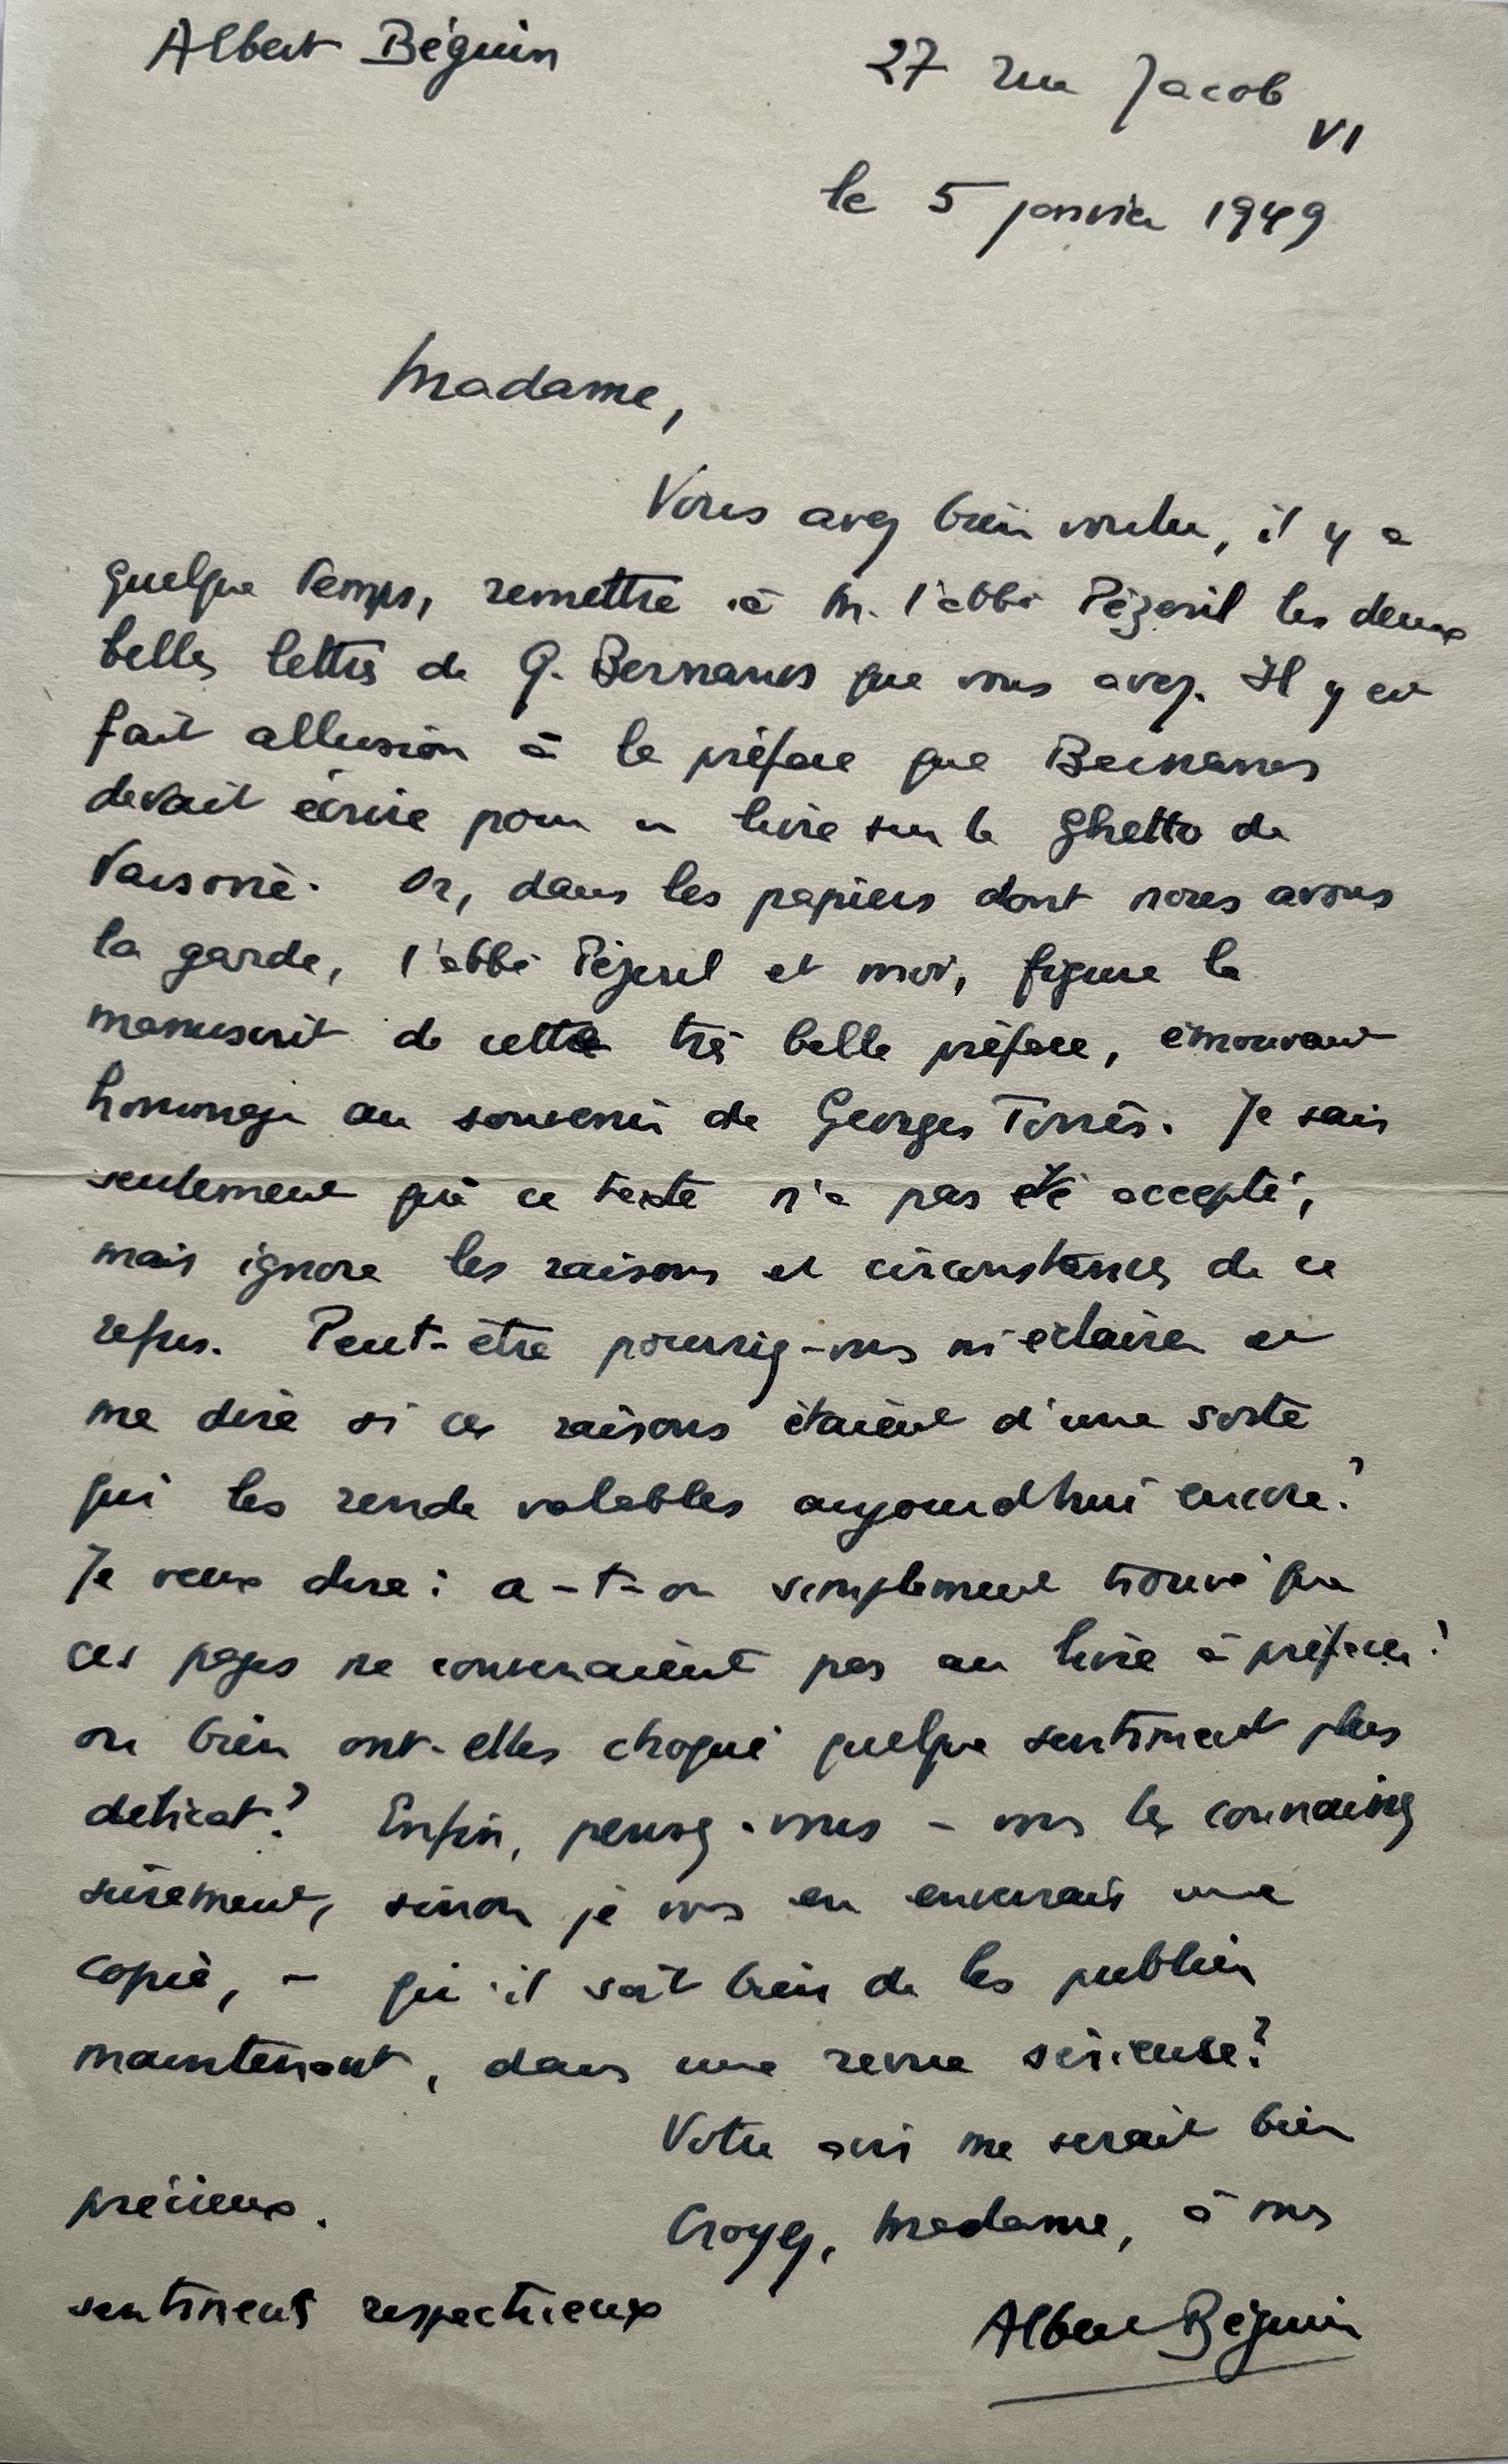 Albert Béguin
27 rue Jacob
VI
le 5 janvier 1949
Madame,
Vous avez bien voulu, il y a
quelque temps, remettre à M. l'abbé Pézeril les deux
belles lettres de G. Bernanos que vous avez. Il y est
fait allusion à la préface que Bernanos
devait écrire pour un livre sur le ghetto de
Varsovie. Or, dans les papiers dont nous avons
la garde, l'abbé Pézeril et moi, figure le
manuscrit de cette très belle préface, émouvant
hommage au souvenir de Georges Torrès. Je sais
seulement que ce texte n'a pas été accepté,
mais ignore les raisons et circonstances de ce
refus. Peut-être pourriez-vous m'éclairer et
me dire si ces raisons étaient d'une sorte
qui les rende valables aujourd'hui encore?
Je veux dire: a-t-on simplement trouvé que
ces pages ne convenaient pas au livre à préfacer?
ou bien ont-elles choqué quelque sentiment plus
délicat? Enfin, pensez-vous - vous les connaissez
sûrement, sinon je vous en enverrais une
copie, - qu'il soit bien de les publier
maintenant, dans une revue sérieuse?
Votre avis me serait bien
précieux.
Croyez, Madame, à mes
sentiments respectueux
Albert Béguin